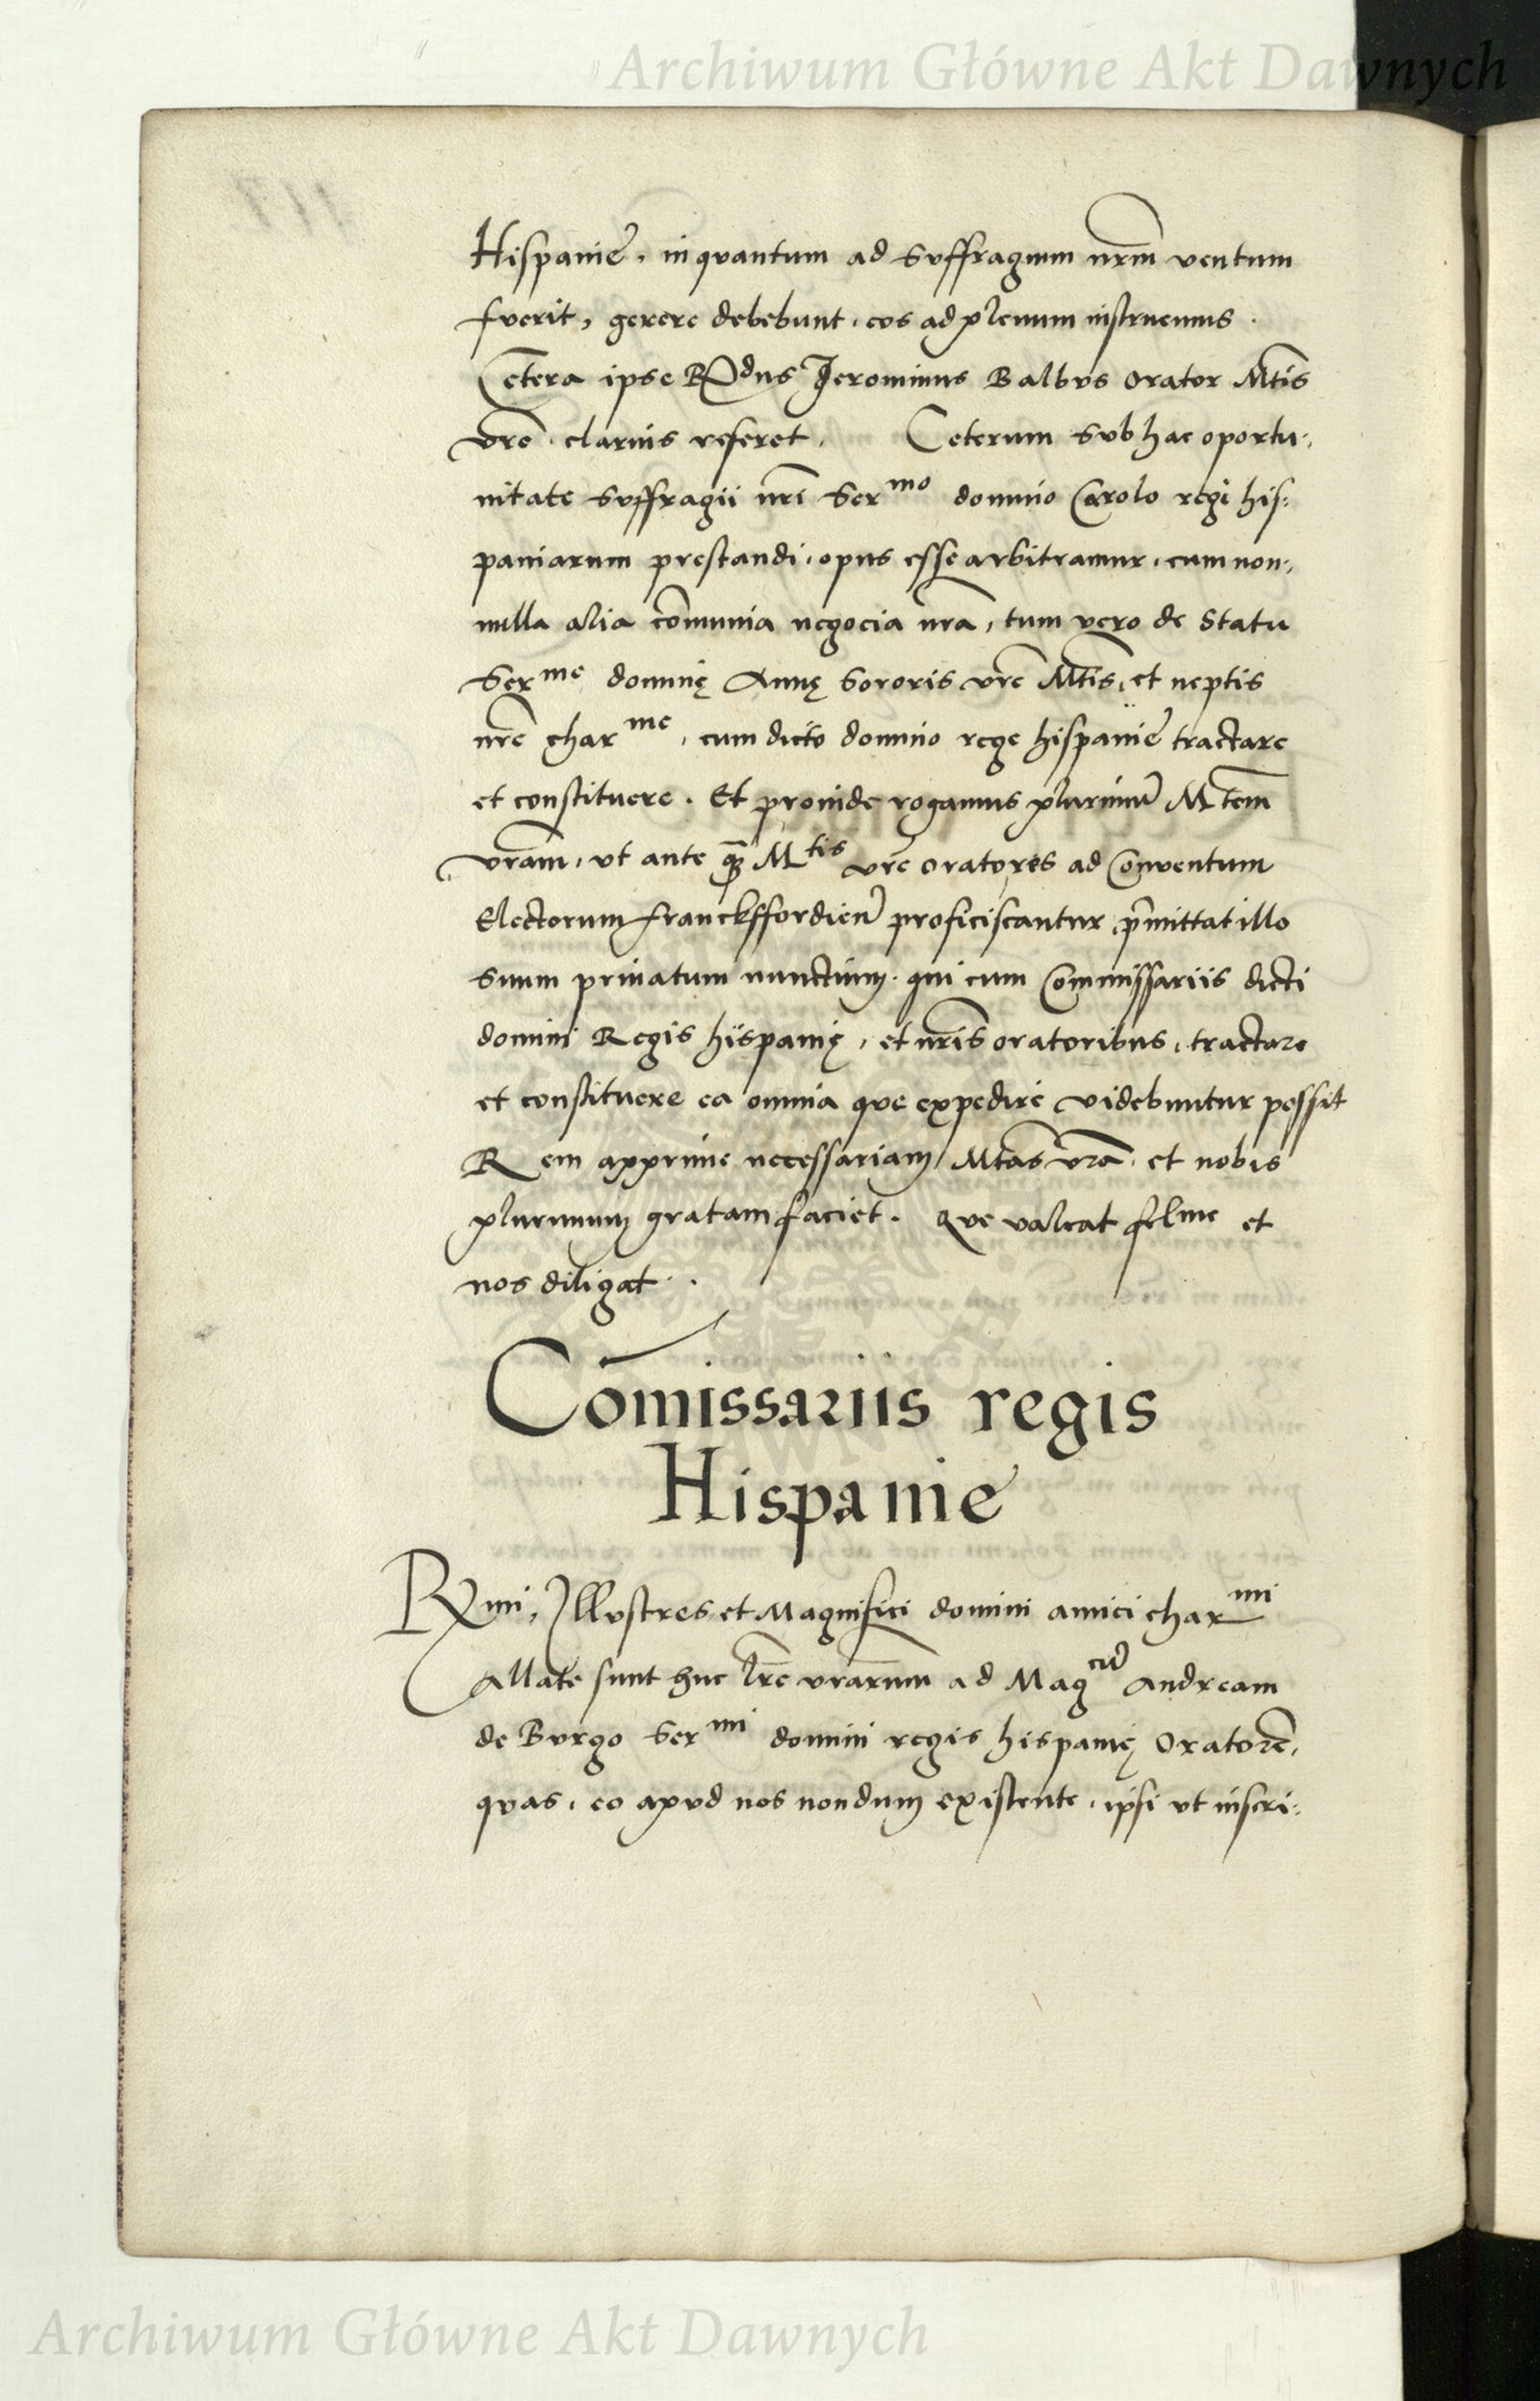 Archiwum Główne Akt Dawnych
Hispanie, inquantum ad suffragium nrm̄ ventum
fuerit, gerere debebunt, eos ad plenum instruemus.
Cētera ipse Rdus Jeronimus Balbus orator Mtis
vrē clarius referet. Ceterum sub hac oportu,
nitate suffragii nrī Ser mo domino Carolo regi his:
paniarum prestandi, opus esse arbitramur, cum non,
nulla alia cōmunia negocia nrā, tum vero de statu
Ser me dominę Annę sororis vrē Mtis, et neptis
nrē char me, cum dicto domino rege hispanie tractare
et constituere. Et proinde rogamus plurimū Mtem
vram̄, ut ante qȝ Mtis vrē oratores ad conventum
Electorum franckffordien̄ proficiscantur, p̄mittat illo
suum privatum nunctium, qui cum Commissariis dicti
domini Regis hispanię, et nrīs oratoribus, tractare
et constituere ea omnia que expedire videbuntur possit
Rem apprime necessariam Mtas vrā, et nobis
plurimum gratam faciet. Que valeat feline et
nos diligat.
Cōmissariis regis
Hispanie
Rmi, Illustres et Magnifici domini amici char mi
Allate sunt huc lrē vrarum ad Mag cū Andream
de Burgo Ser mi domini regis hispanię Oratorē,
quas, eo apud nos nondum existente, ipsi ut inscri:
Archiwum Główne Akt Dawnych